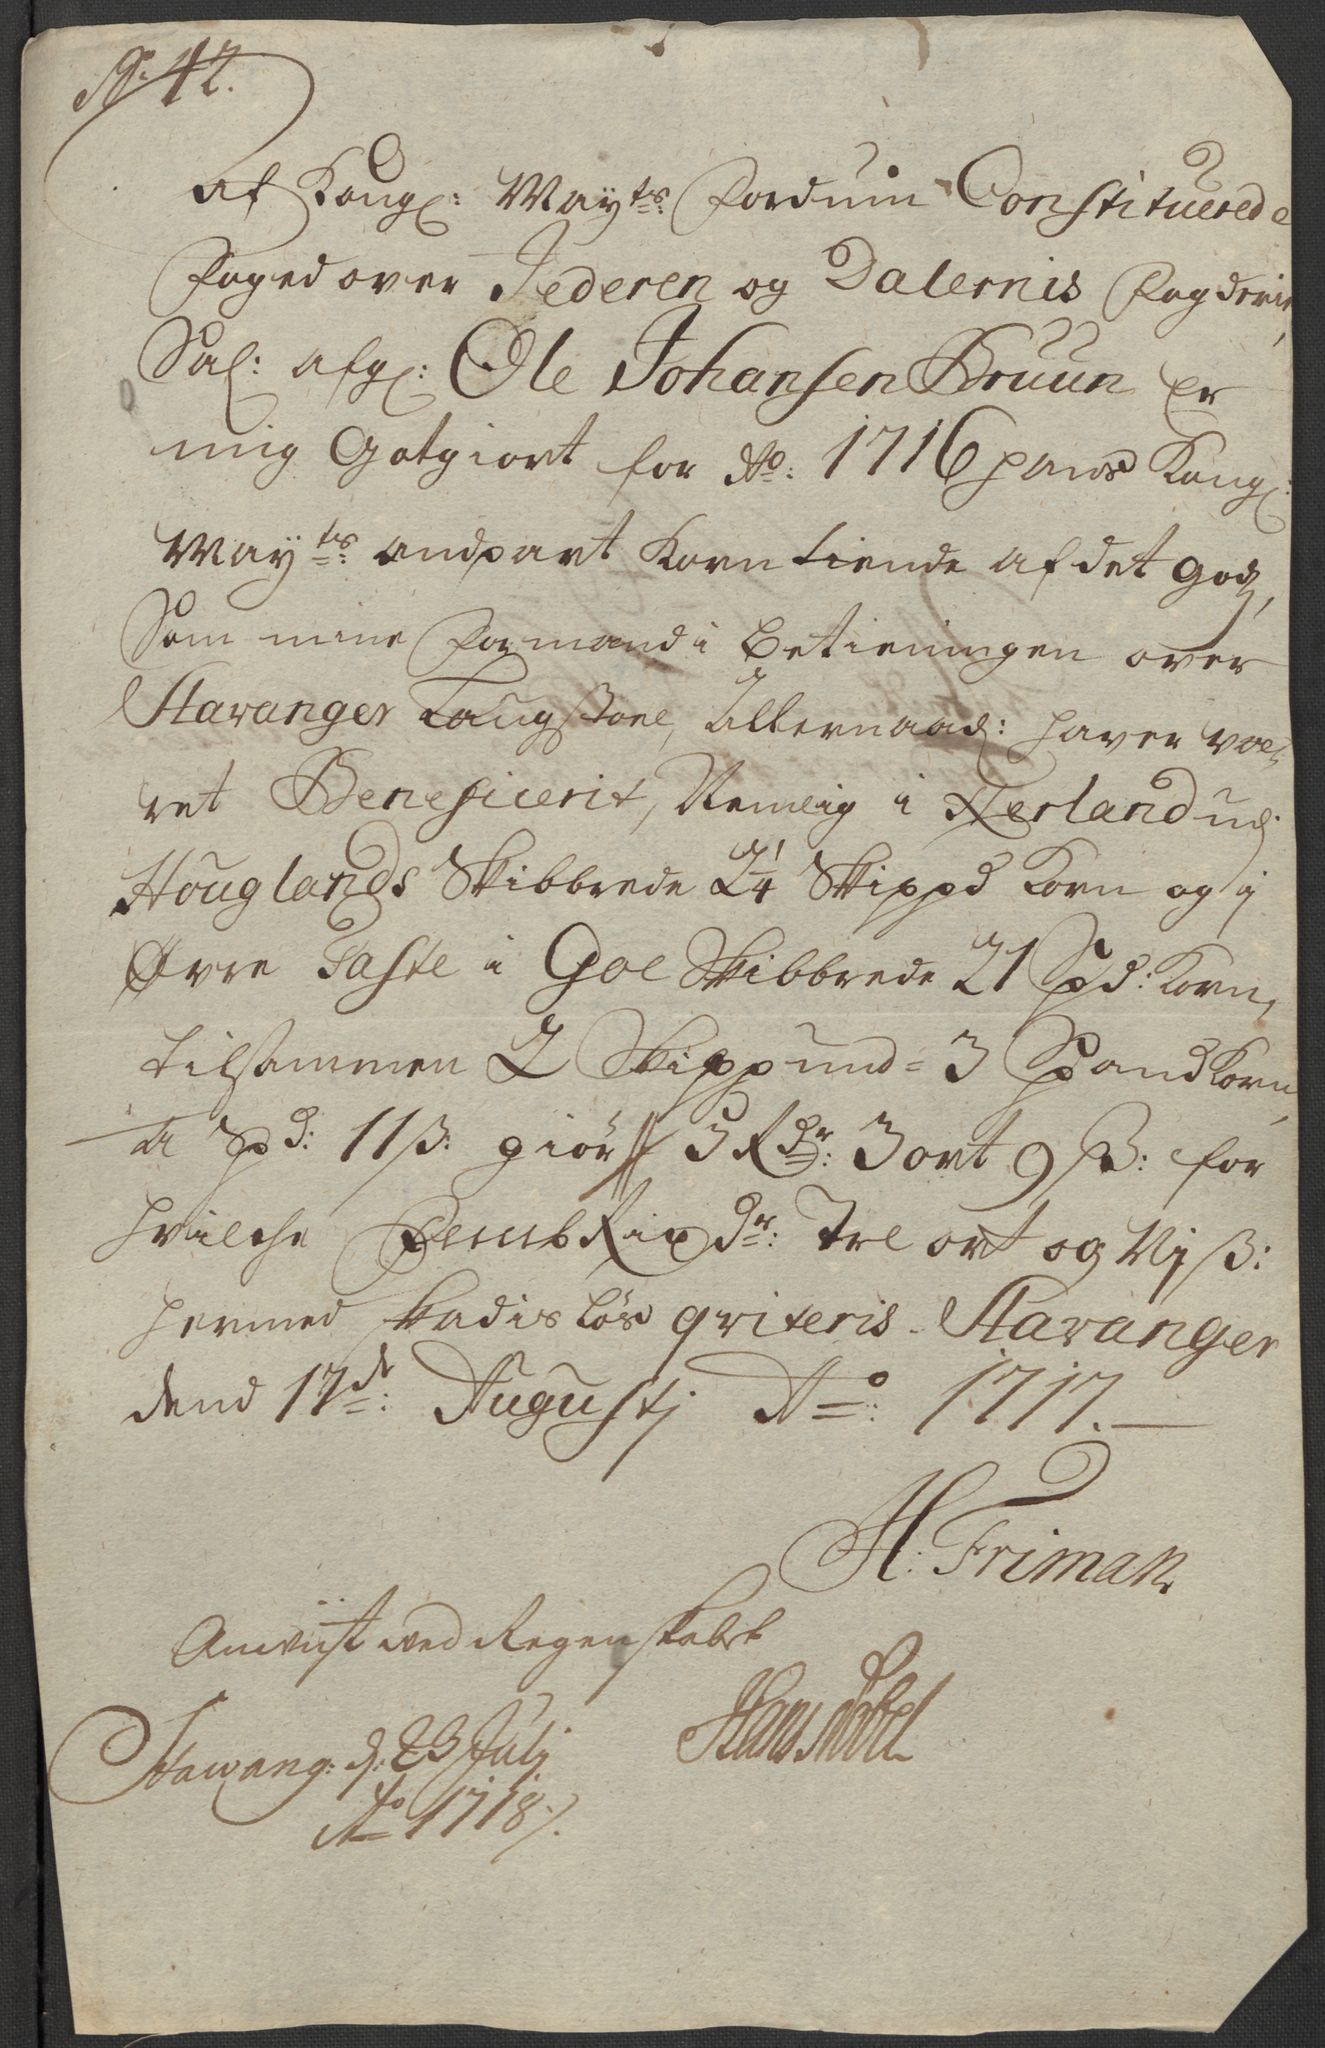 No: 42.
Af Kongl: Mayts: Fordum Constituerede
Foged over Jederen og Dalernis Fogderie,
Sal: afg: Ole Johansen Bruun Er
mig Gotgiort for Ao: 1716 hans Kongl:
Mayts: andpart Korn tiende af det godz,
Som mine Formænd i betieningen over
Stavanger Laugstoel, Allernaad: haver væ-
ret Beneficerit, Nemlig i Nerland ud
Houglands Skibbrede 2 1/4 Skippd Korn og i
Øvre Taste i Goe Skibbrede 21 Spd: Korn,
tilsammen 2 Skippund = 3 Spand Korn,
a Spd: 11 ß: giør // 5 Rdr: 3 ort 9 ß: for
hvilche Femb Rixdr: Tre ort og Nj ß:
hermed skadisløs qviteris. Stavanger
dend 17de: Augustj Ao: 1717.
H: Friman.
Anviist ved Regenskabet
Stawang: d: 23 Julj
Ao 1718 /.
Hans Nobel